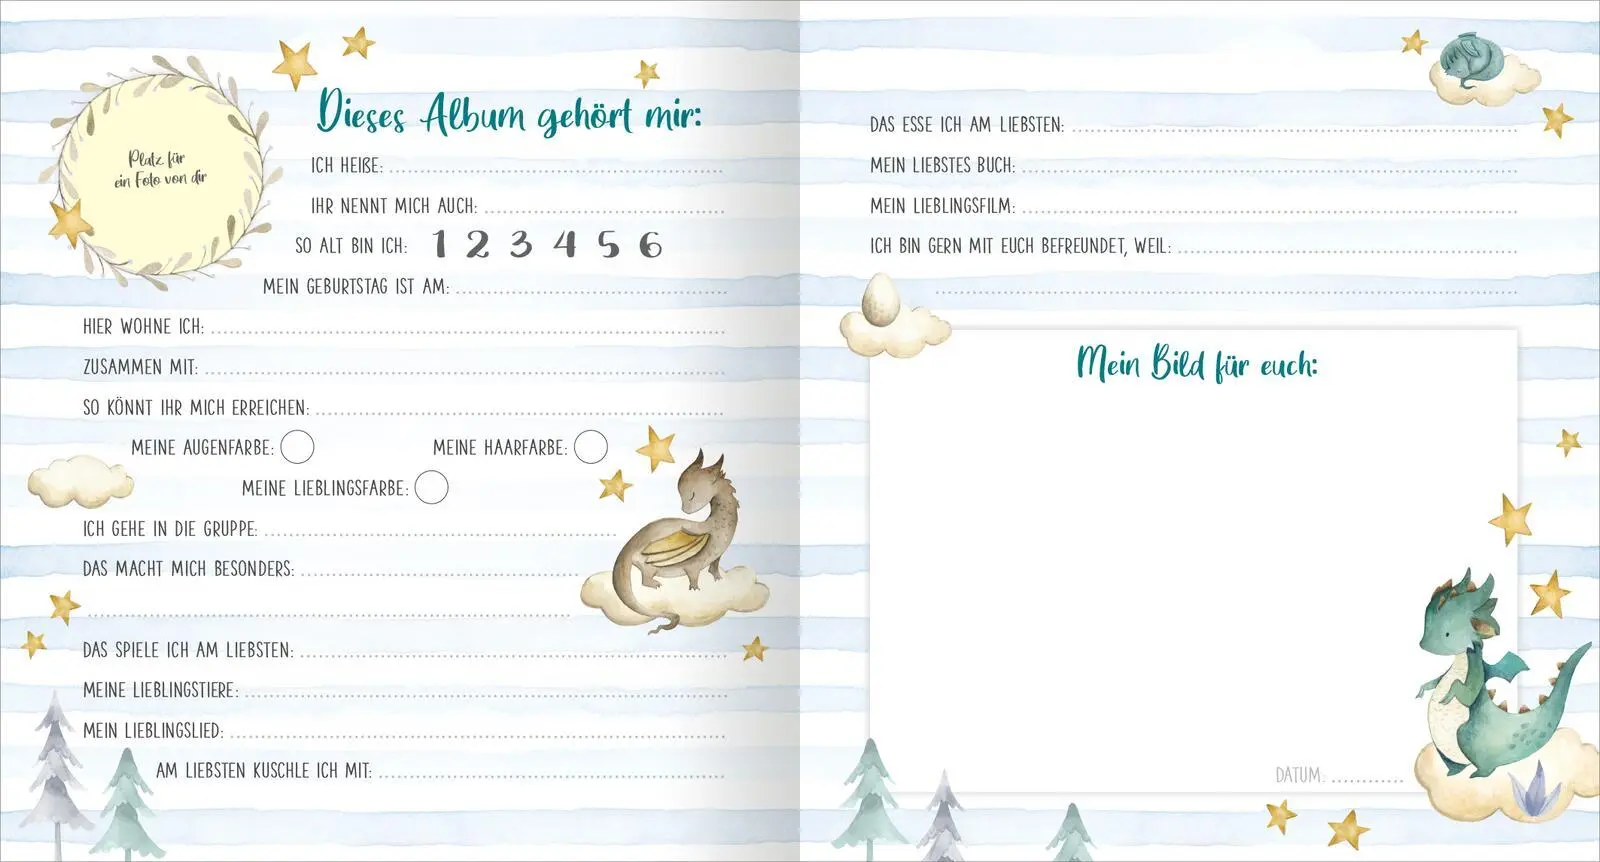 Platz für
ein Foto von dir
Dieses Album gehört mir:
ICH HEIẞE:
IHR NENNT MICH AUCH:
SO ALT BIN ICH: 1 2 3 4 5 6
MEIN GEBURTSTAG IST AM:
HIER WOHNE ICH:
ZUSAMMEN MIT:
SO KÖNNT IHR MICH ERREICHEN:
MEINE AUGENFARBE: MEINE HAARFARBE:
MEINE LIEBLINGSFARBE:
ICH GEHE IN DIE GRUPPE:
DAS MACHT MICH BESONDERS:
DAS SPIELE ICH AM LIEBSTEN:
MEINE LIEBLINGSTIERE:
MEIN LIEBLINGSLIED:
AM LIEBSTEN KUSCHLE ICH MIT:
DAS ESSE ICH AM LIEBSTEN:
MEIN LIEBSTES BUCH:
MEIN LIEBLINGSFILM:
ICH BIN GERN MIT EUCH BEFREUNDET, WEIL:
Mein Bild für euch:
DATUM: